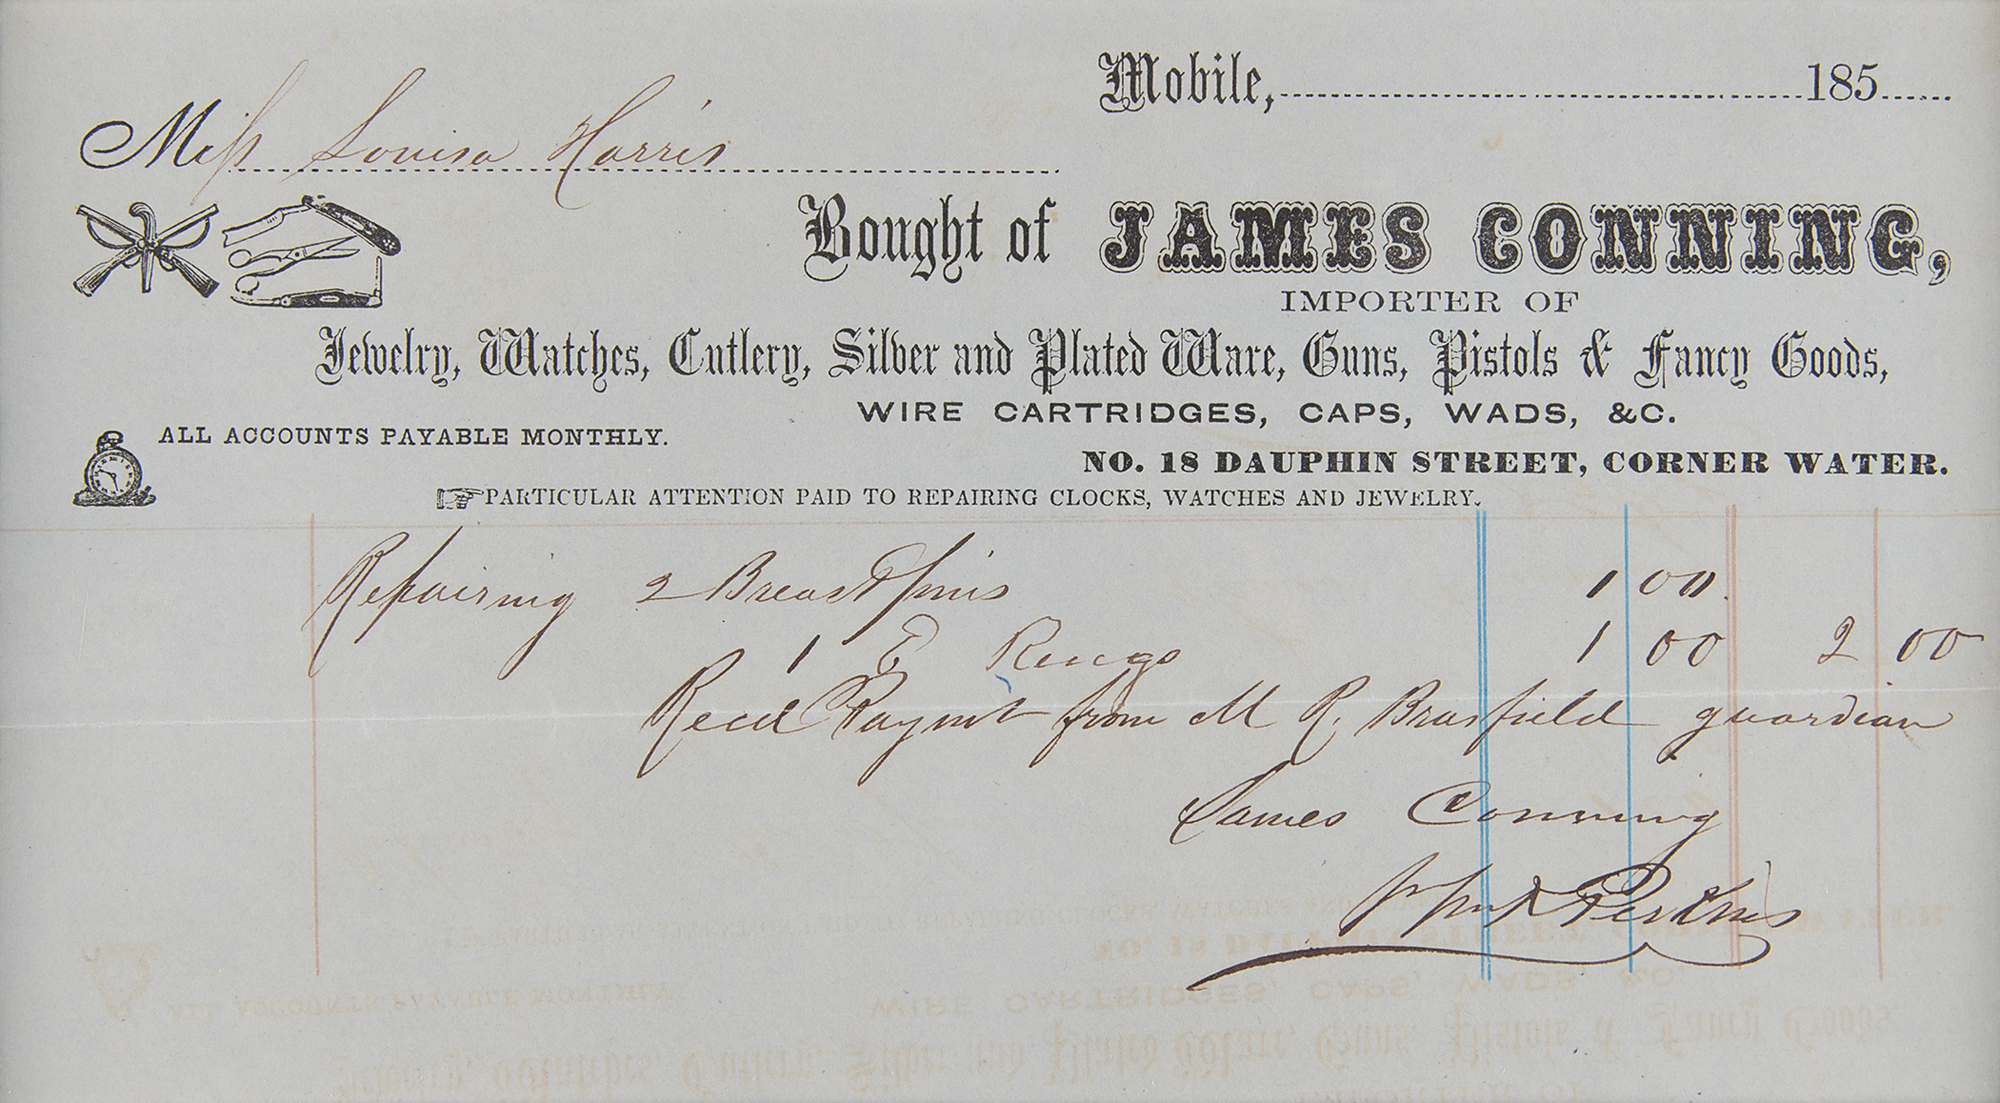 Mobile, 185
Miss Louisa Harris
Bought of JAMES CONNING,
IMPORTER OF
Jewelry, Watches, Cutlery, Silver and Plated Ware, Guns, Pistols & Fancy Goods,
WIRE CARTRIDGES, CAPS, WADS, &C.
ALL ACCOUNTS PAYABLE MONTHLY.
NO. 18 DAUPHIN STREET, CORNER WATER.
PARTICULAR ATTENTION PAID TO REPAIRING CLOCKS, WATCHES AND JEWELRY.
Repairing 2 Breastpins 1 00
1 E Rings 1 00 2 00
Recd Paymt from M R. Brasfield guardian
James Conning
Perkins